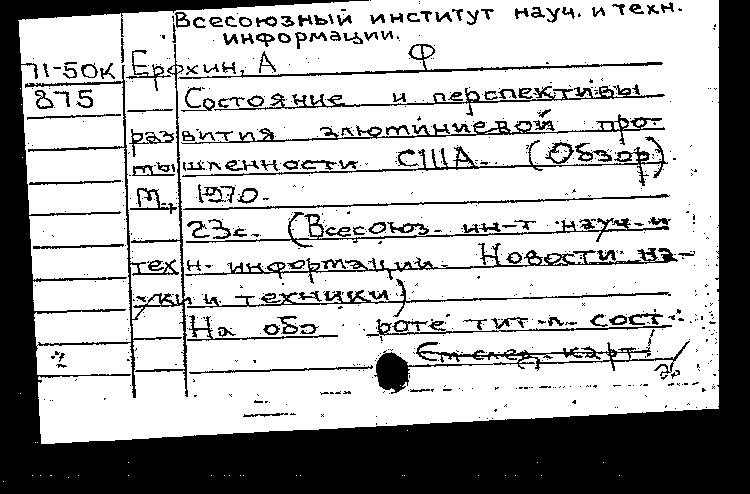 Всесоюзный институт науч. и техн.
информации.
71-50к Ерохин, А Ф
875 Состояние и перспективы
развития алюминиевой про-
мышленности США. (Обзор).
М., 1970.
23с. (Всесоюз. ин-т науч. и
техн. информации. Новости на-
уки и техники)
На обо роте тит. л. сост.:
См след. карт.